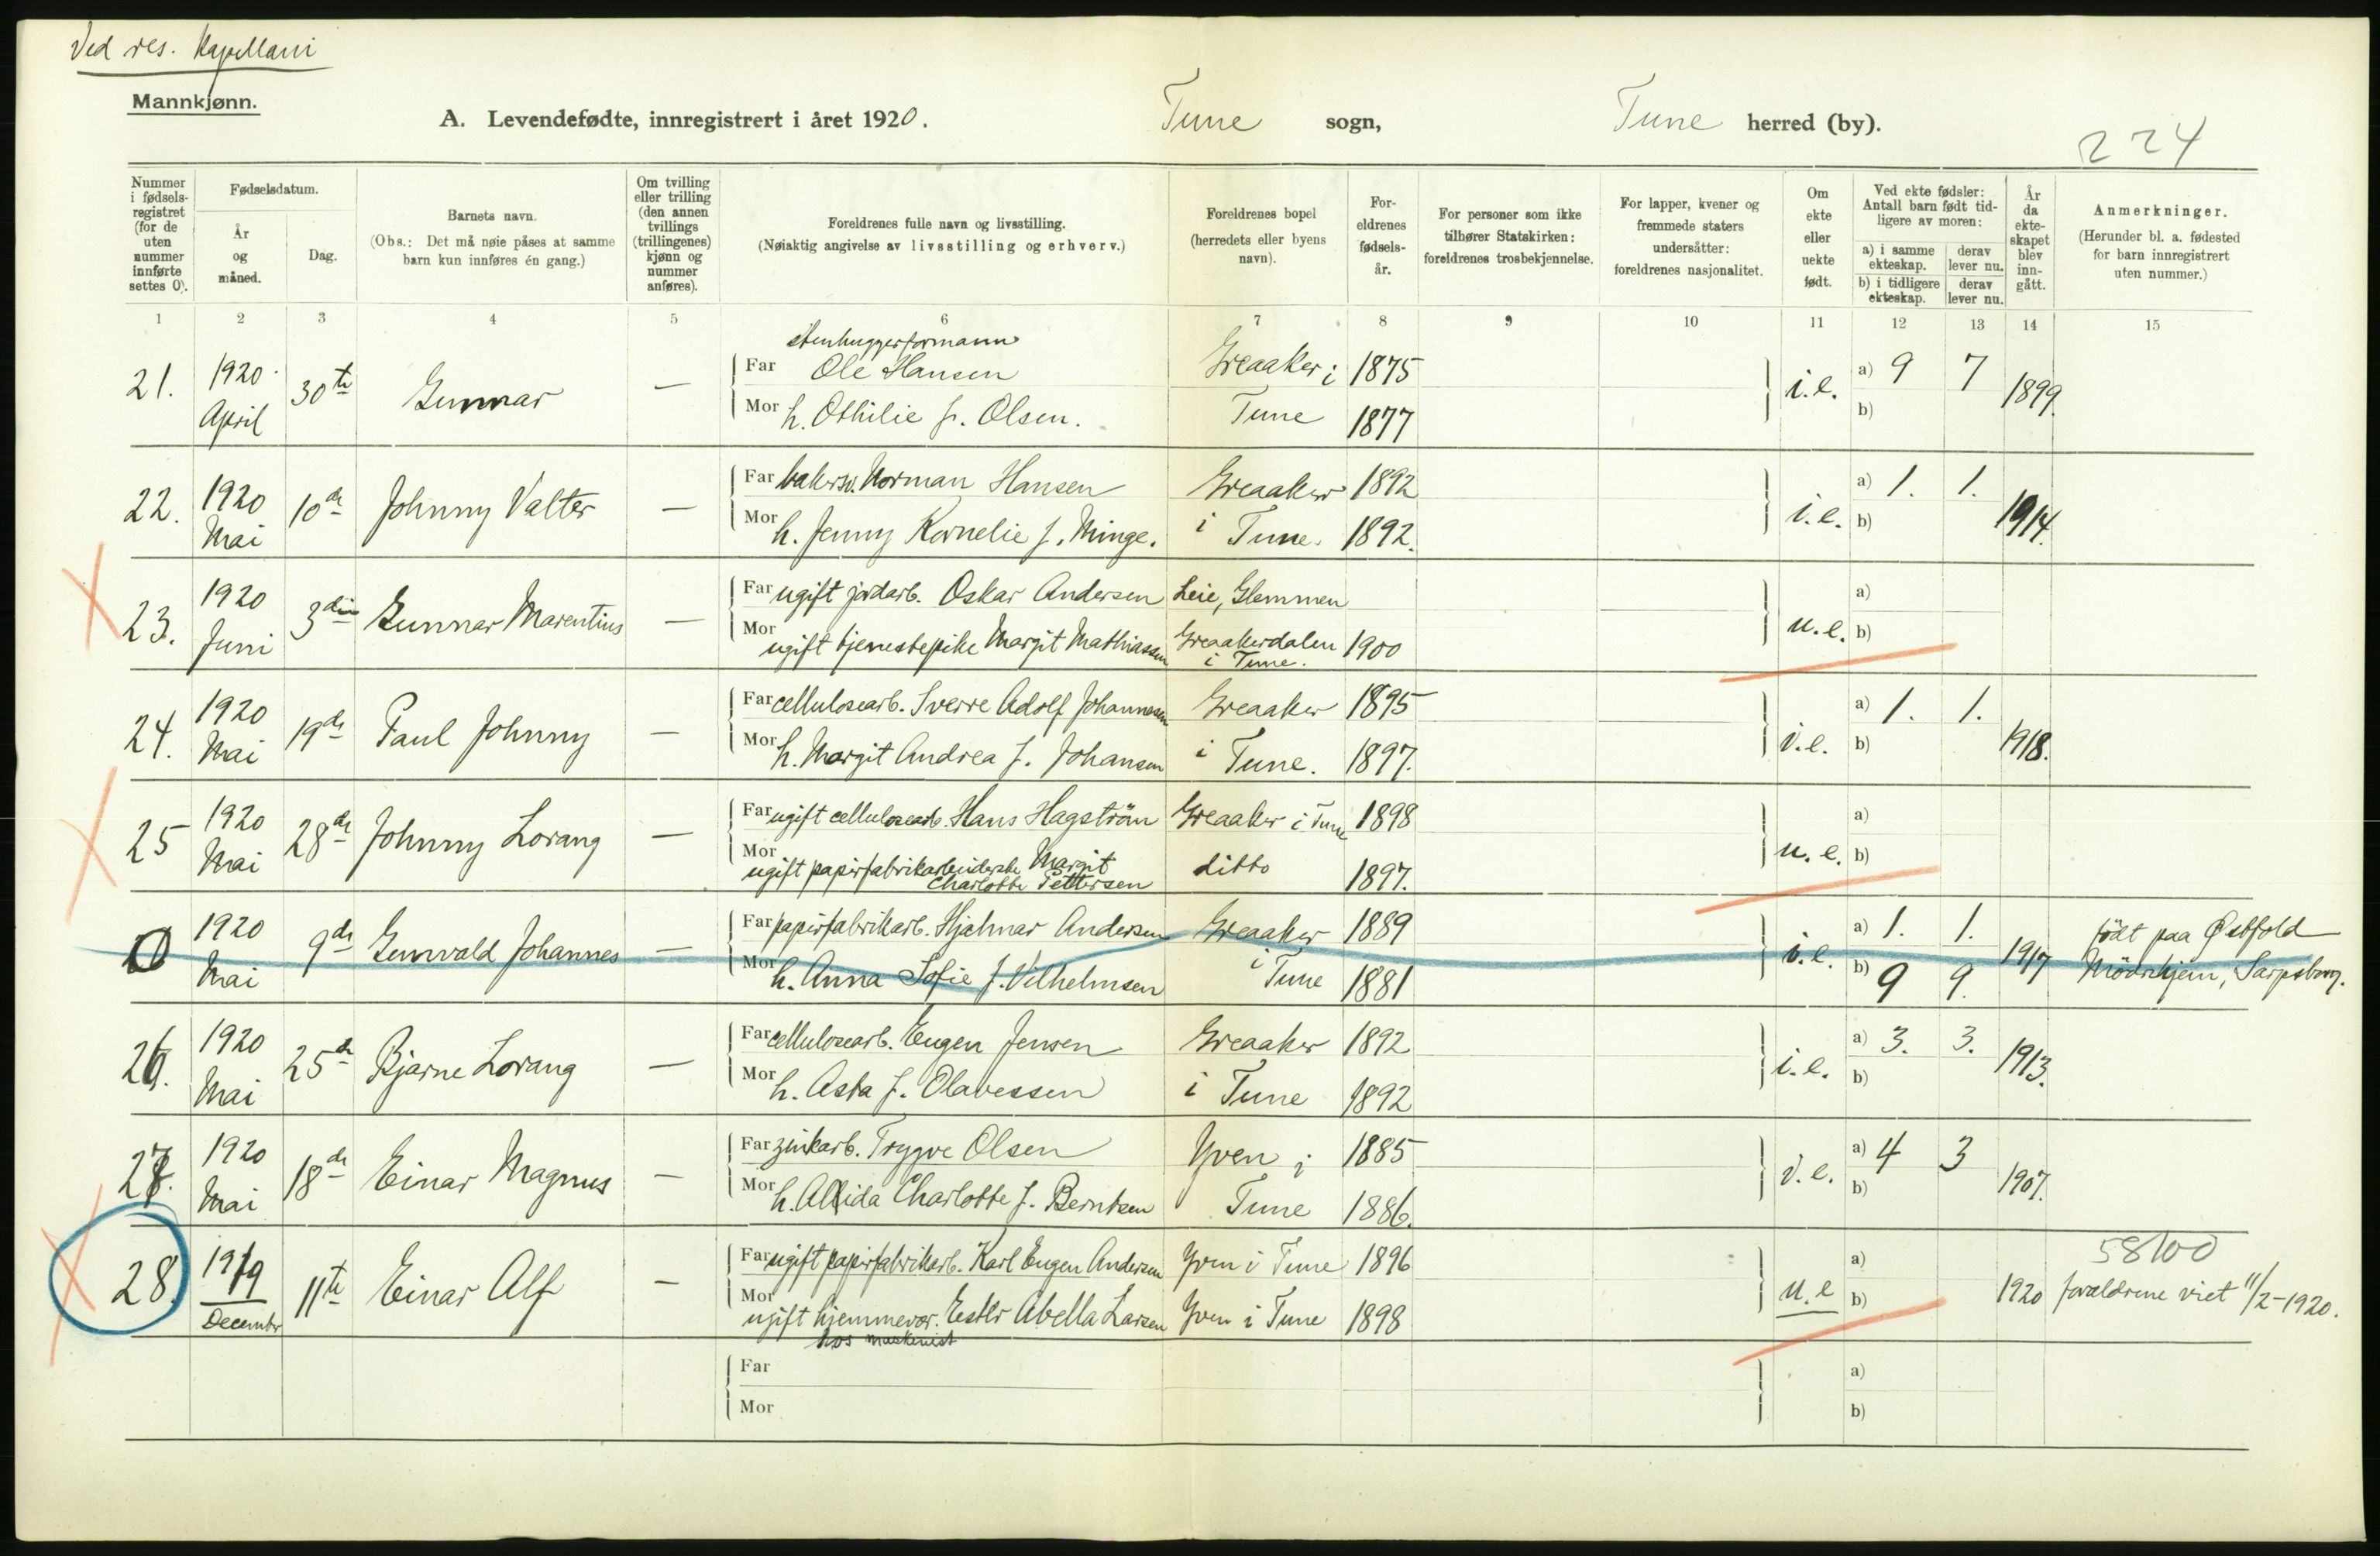 Ved res. Kapellani
Mannkjønn.
A. Levendefødte, innregistrert i året 1920. Tune sogn, Tune herred (by).
224
Nummer i fødselsregistret (for de uten nummer innførte settes 0).
Fødselsdatum.
År og måned.
Dag.
Barnets navn.
(Obs.: Det må nøie påses at samme barn kun innføres én gang.)
Om tvilling eller trilling (den annen tvillings (trillingenes) kjønn og nummer anføres).
Foreldrenes fulle navn og livsstilling.
(Nøiaktig angivelse av livsstilling og erhverv.)
Foreldrenes bopel (herredets eller byens navn).
Foreldrenes fødselsår.
For personer som ikke tilhører Statskirken: foreldrenes trosbekjennelse.
For lapper, kvener og fremmede staters undersåtter: foreldrenes nasjonalitet.
Om ekte eller uekte født.
Ved ekte fødsler: Antall barn født tidligere av moren:
a) i samme ekteskap. derav lever nu.
b) i tidligere ekteskap. derav lever nu.
År da ekteskapet blev inngått.
Anmerkninger.
(Herunder bl. a. fødested for barn innregistrert uten nummer.)
1 2 3 4 5 6 7 8 9 10 11 12 13 14 15
21. 1920 April 30te Gunnar —
stenhuggerformann
Far Ole Hansen Greaaker i 1875
Mor h. Othilie f. Olsen. Tune 1877
i.e. a) 9 7 b) 1899.
22. 1920 Mai 10de Johnny Valter —
Far bakersv. Norman Hansen Greaaker 1892
Mor h. Jenny Kornelie f. Minge. i Tune. 1892.
i.e. a) 1. 1. b) 1914.
23. 1920 Juni 3die Gunnar Marentius —
Far ugift jordarb. Oskar Andersen Leie, Glemmen
Mor ugift tjenestepike Margit Mathiassen Greaakerdalen i Tune. 1900
u.e. a) b)
24. 1920 Mai 19de Paul Johnny —
Far cellulosearb. Sverre Adolf Johannesen Greaaker 1895
Mor h. Margit Andrea f. Johansen i Tune. 1897.
i.e. a) 1. 1. b) 1918.
25 1920 Mai 28de Johnny Lorang —
Far ugift cellulosearb. Hans Hagström Greaaker i Tune 1898
Mor ugift papirfabrikarbeiderske Margit Charlotte Pettersen ditto 1897.
u.e. a) b)
0 1920 Mai 9de Gunvald Johannes —
Far papirfabrikarb. Hjalmar Andersen Greaaker 1889
Mor h. Anna Sofie f. Vilhelmsen i Tune 1881
i.e. a) 1. 1. b) 9 9. 1917 født paa Østfold Mödrehjem, Sarpsborg.
26. 1920 Mai 25de Bjarne Lorang —
Far cellulosearb. Eugen Jensen Greaaker 1892
Mor h. Asta f. Olavessen i Tune 1892
i.e. a) 3. 3. b) 1913.
27. 1920 Mai 18de Einar Magnus —
Far zinkarb. Trygve Olsen Yven i 1885
Mor h. Alida Charlotte f. Berntsen Tune 1886.
i.e. a) 4 3 b) 1907.
28. 1919 December 11te Einar Alf —
Far ugift papirfabrikarb. Karl Eugen Andersen Yven i Tune 1896
Mor ugift hjemmevær. Ester Abella Larsen Yven i Tune 1898
hos maskinist
u.e a) b) 1920 58100
forældrene viet 11/2-1920.
Far
Mor
a)
b)